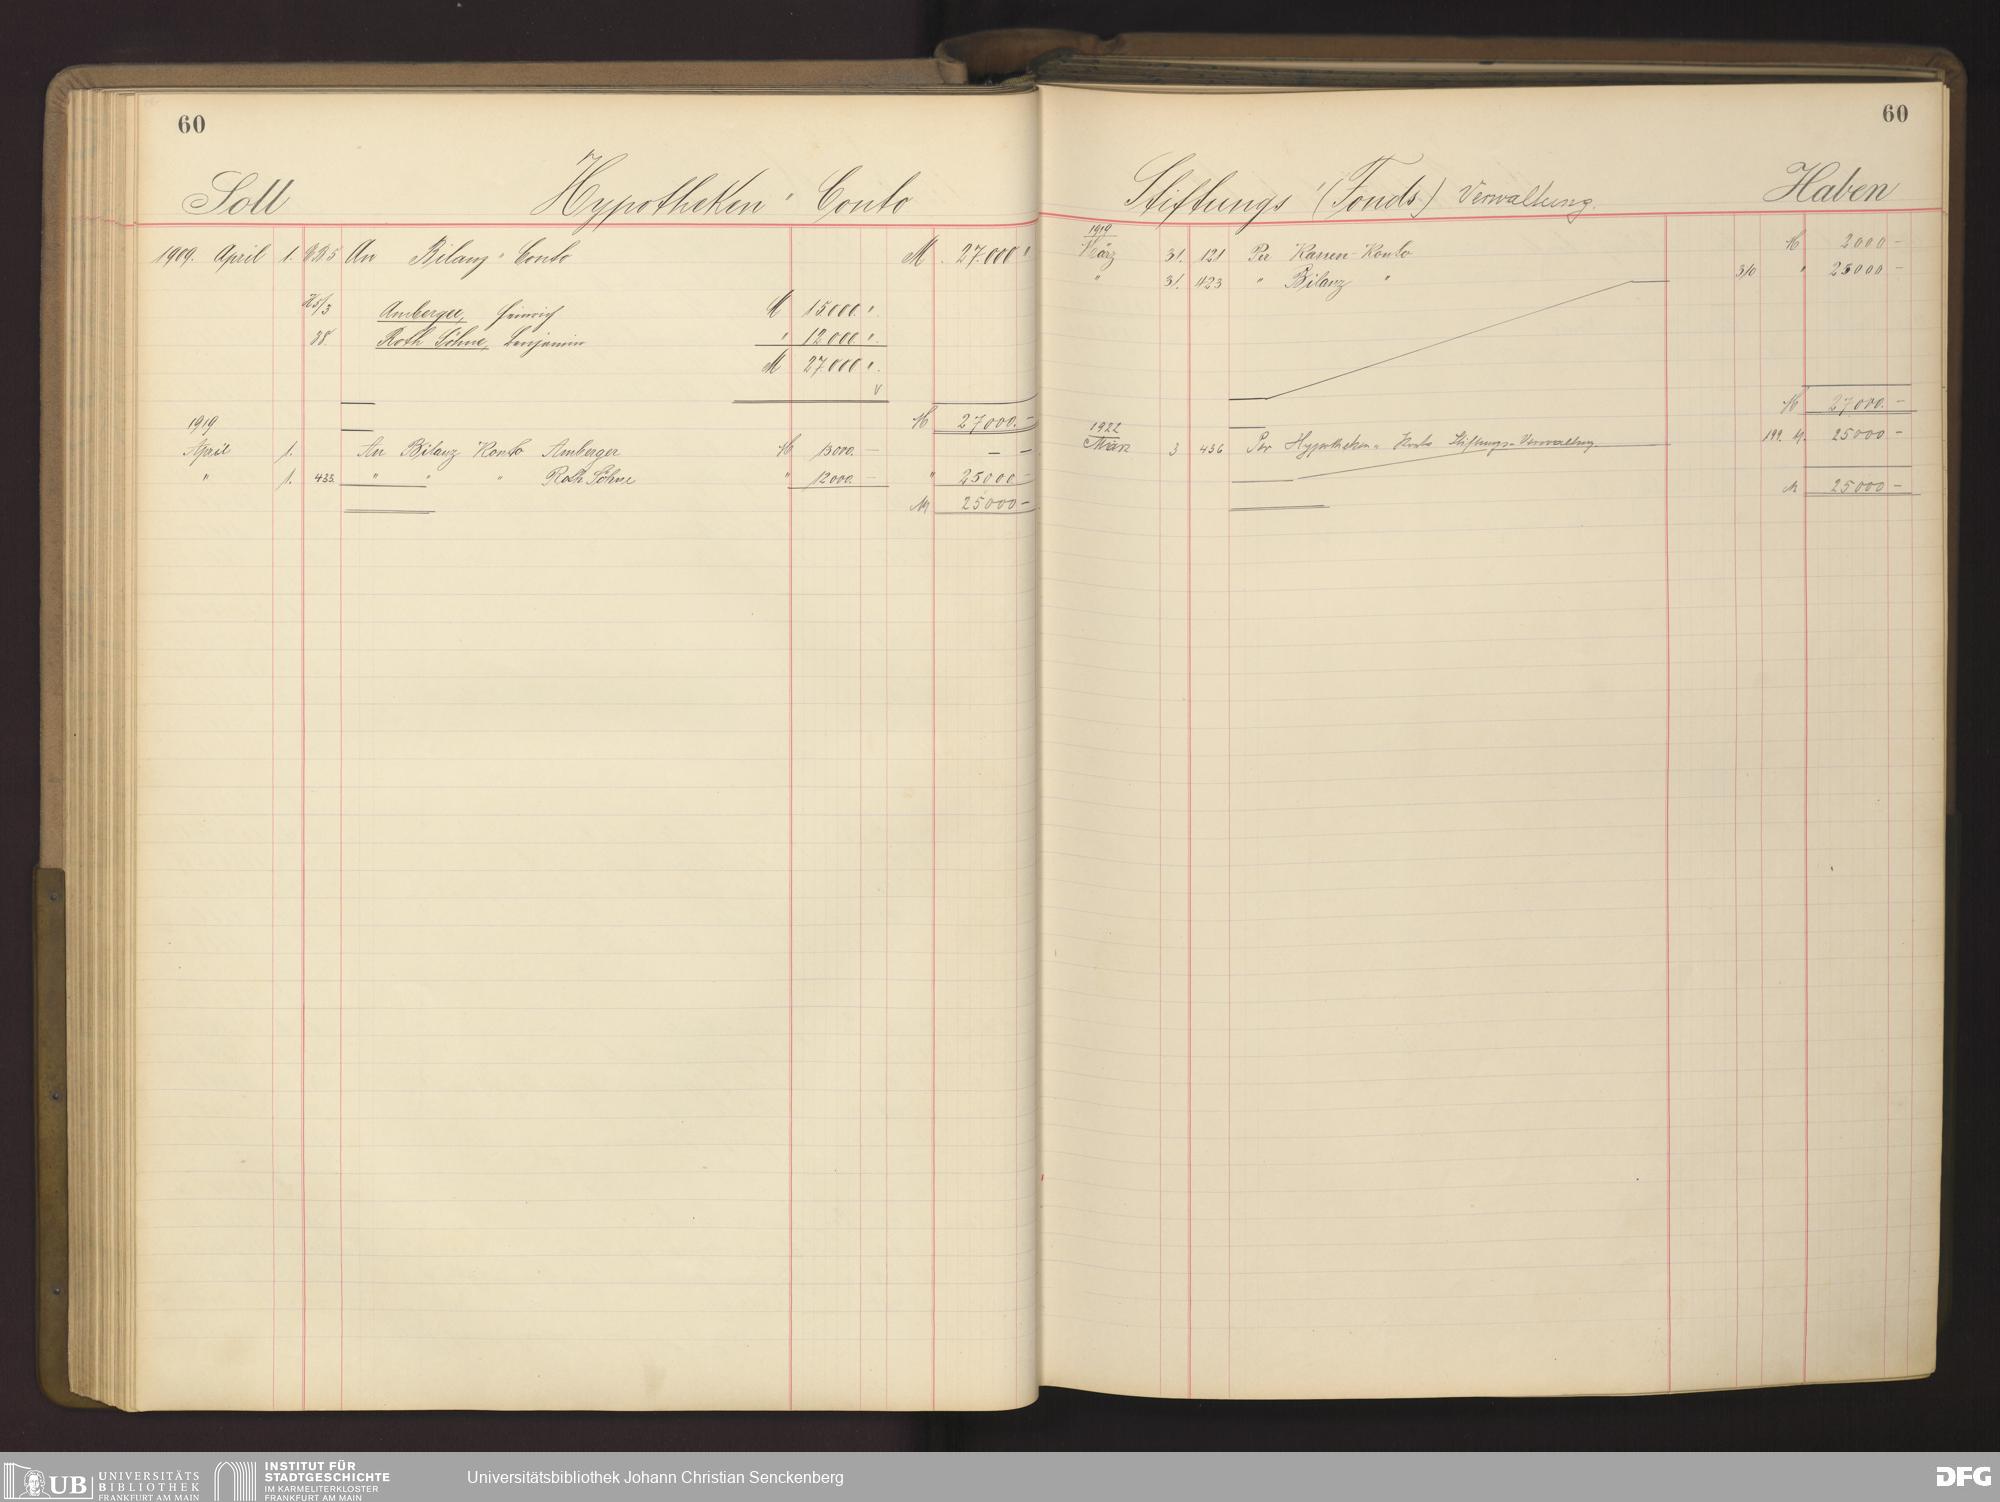 60
Soll Hypotheken Conto
1909. April 1. An Bilanz Conto M. 27.000 "
Amberger, Heinrich M 15000. ".
38. Roth Söhne, Benjamin " 12000 ".
M 27.000 ".
M 27000. –
1919
April 1. An Bilanz Konto Amberger M 13000. – – –
" 1. 433. " " " Roth Söhne " 12000. – " 25000 –
M 25000 –
60
Stiftungs (Fonds) Verwaltung. Haben
1919
März 31. 121 Per Kassen-Konto M 2000 –
" 31. 423 " Bilanz " 310 " 25000 –
M 27000. –
1922
März 3 436 Per Hypotheken- Konto Stiftungs-Verwaltung 199. M. 25000 –
M 25000 –
UB UNIVERSITÄTS
BIBLIOTHEK
FRANKFURT AM MAIN
INSTITUT FÜR
STADTGESCHICHTE
IM KARMELITERKLOSTER
FRANKFURT AM MAIN
Universitätsbibliothek Johann Christian Senckenberg
DFG